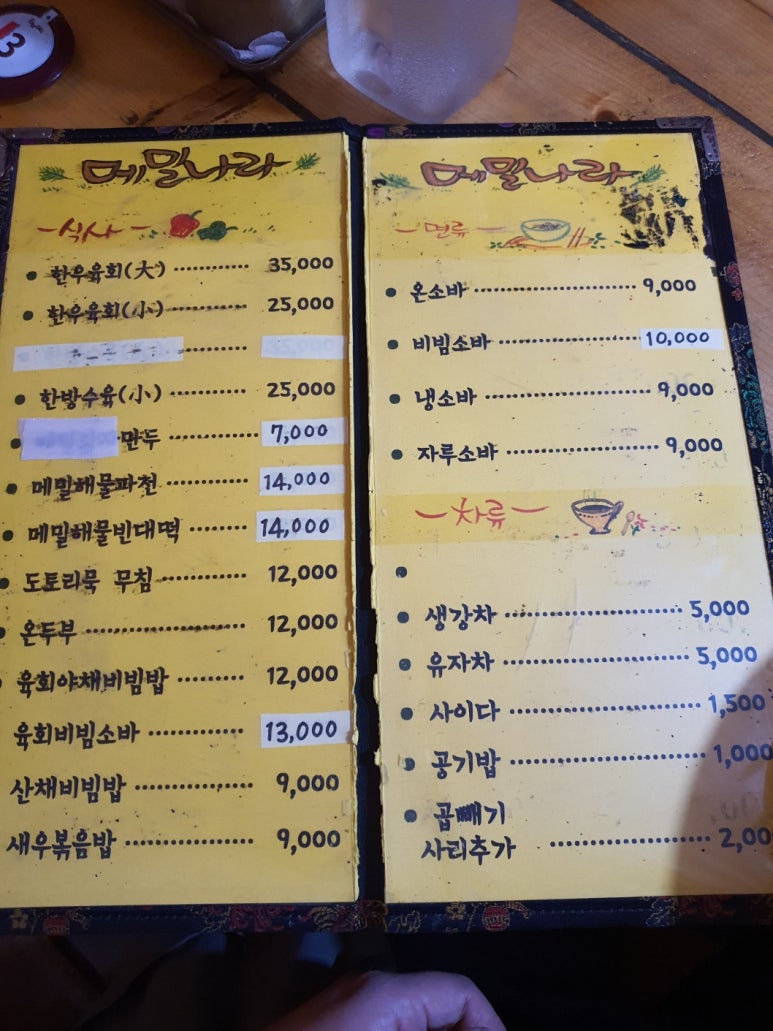 메밀나라
- 식사 -
• 한우육회(大) ·············· 35,000
• 한우육회(小) ·············· 25,000
• 한방수육(小) ·············· 25,000
만두 ·············· 7,000
• 메밀해물파전 ·············· 14,000
• 메밀해물빈대떡 ·········· 14,000
• 도토리묵 무침 ·············· 12,000
• 온두부 ·························· 12,000
• 육회야채비빔밥 ·········· 12,000
육회비빔소바 ·············· 13,000
산채비빔밥 ·················· 9,000
새우볶음밥 ·················· 9,000
메밀나라
- 면류 -
• 온소바 ·························· 9,000
• 비빔소바 ······················ 10,000
• 냉소바 ·························· 9,000
• 자루소바 ······················ 9,000
- 차류 -
•
• 생강차 ·························· 5,000
• 유자차 ·························· 5,000
• 사이다 ·························· 1,500
• 공기밥 ·························· 1,000
• 곱빼기
사리추가 ······················ 2,00